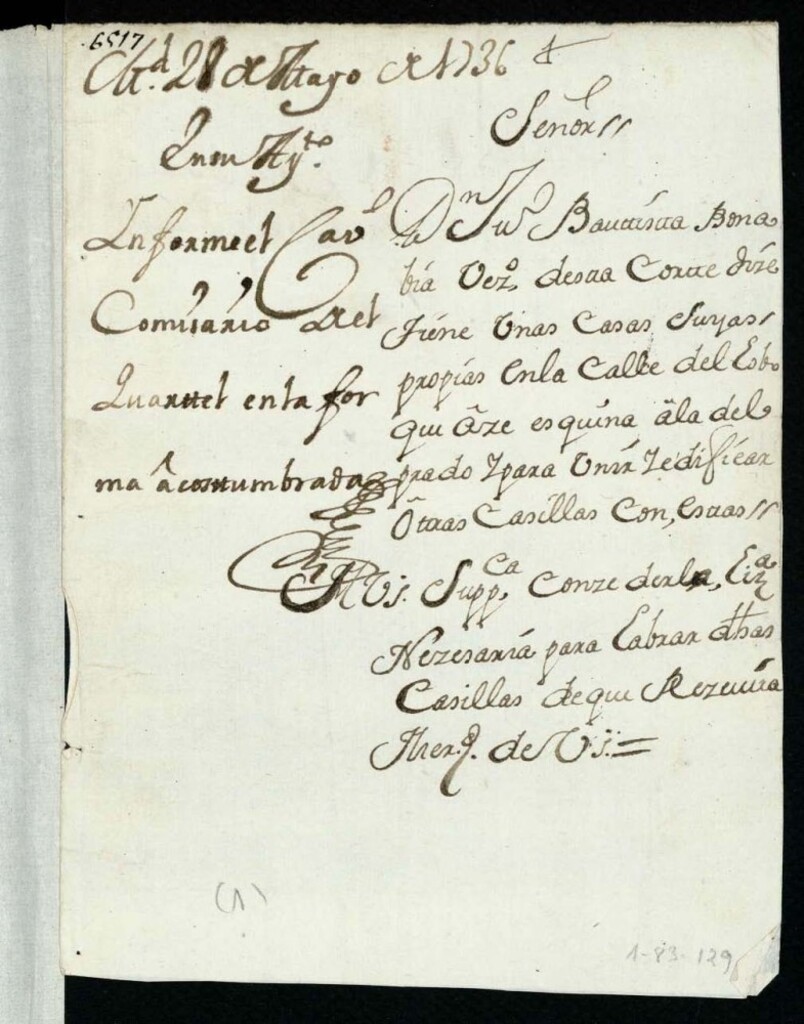 6517
Md. 28 de Mayo de 1736
En su Ayto.
Informe el Cavo
Comisario del
Quarttel en la for
ma acostumbrada
Señor //
Dn. Juo Bauttista Bona
bia Vezo. destta Cortte dize
tiene Unas Casas Suyas //
propias en la Calle del
que aze esquina âla del
prado Y para Unir Y edificar
Ôttras Casillas Con, esttas //
A Vs. Suppca. Conzederle, Liza
Nezesaria para Labrar dhas
Casillas de que Rezevira
Merd. de Vs. =
(1)
1-83-129